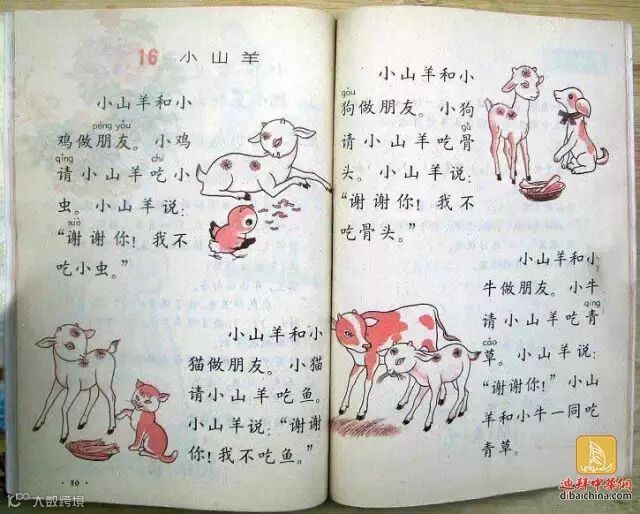 16 小山羊
小山羊和小
鸡做朋友。小鸡
péng yǒu
请小山羊吃小
qǐng chī
虫。小山羊说：
“谢谢你！我不
xiè
吃小虫。”
小山羊和小
猫做朋友。小猫
请小山羊吃鱼。
小山羊说：“谢谢
你！我不吃鱼。”
小山羊和小
gǒu
狗做朋友。小狗
gǔ
请小山羊吃骨
头。小山羊说：
“谢谢你！我不
吃骨头。”
小山羊和小
牛做朋友。小牛
qīng
请小山羊吃青
cǎo
草。小山羊说：
“谢谢你！”小山
羊和小牛一同吃
青草。
大数跨境
迪拜中华网
dibaichina.com